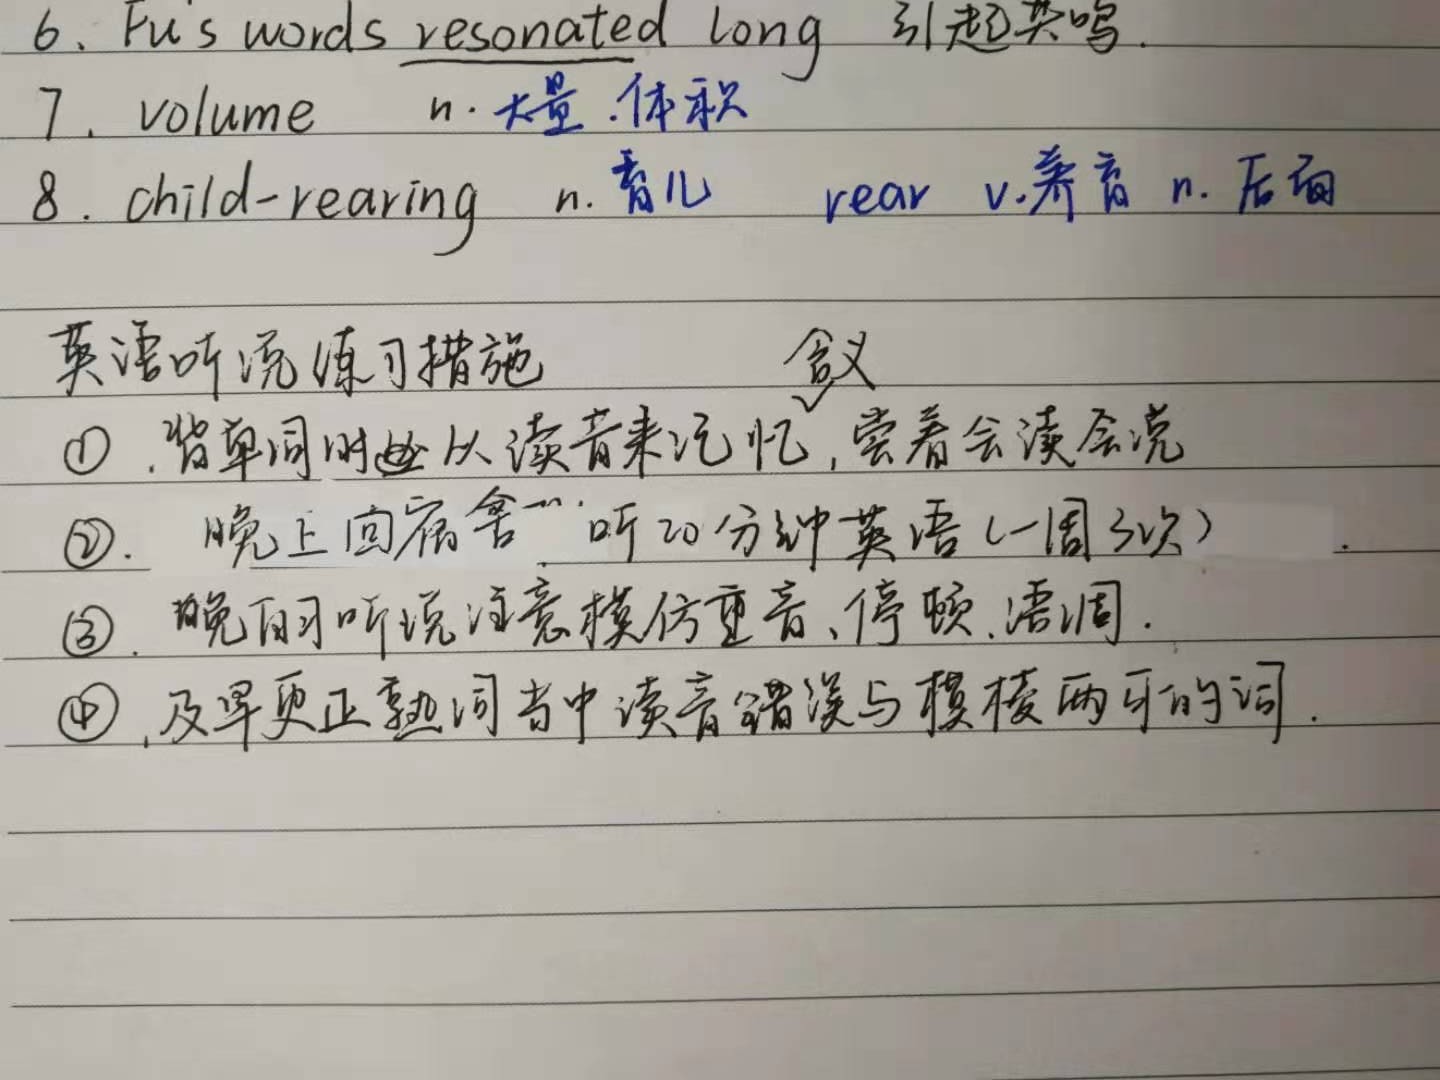 6. Fu's words resonated long 引起共鸣.
7. volume n. 大量.体积
8. child-rearing n. 育儿 rear v.养育 n. 后面
英语听说练习措施 含义
①.背单词时从读音来记忆,尝着会读会说
②. 晚上回宿舍 听20分钟英语(一周3次).
③. 晚自习听说注意模仿重音、停顿、语调.
④.及早更正熟词当中读音错误与模棱两可的词.